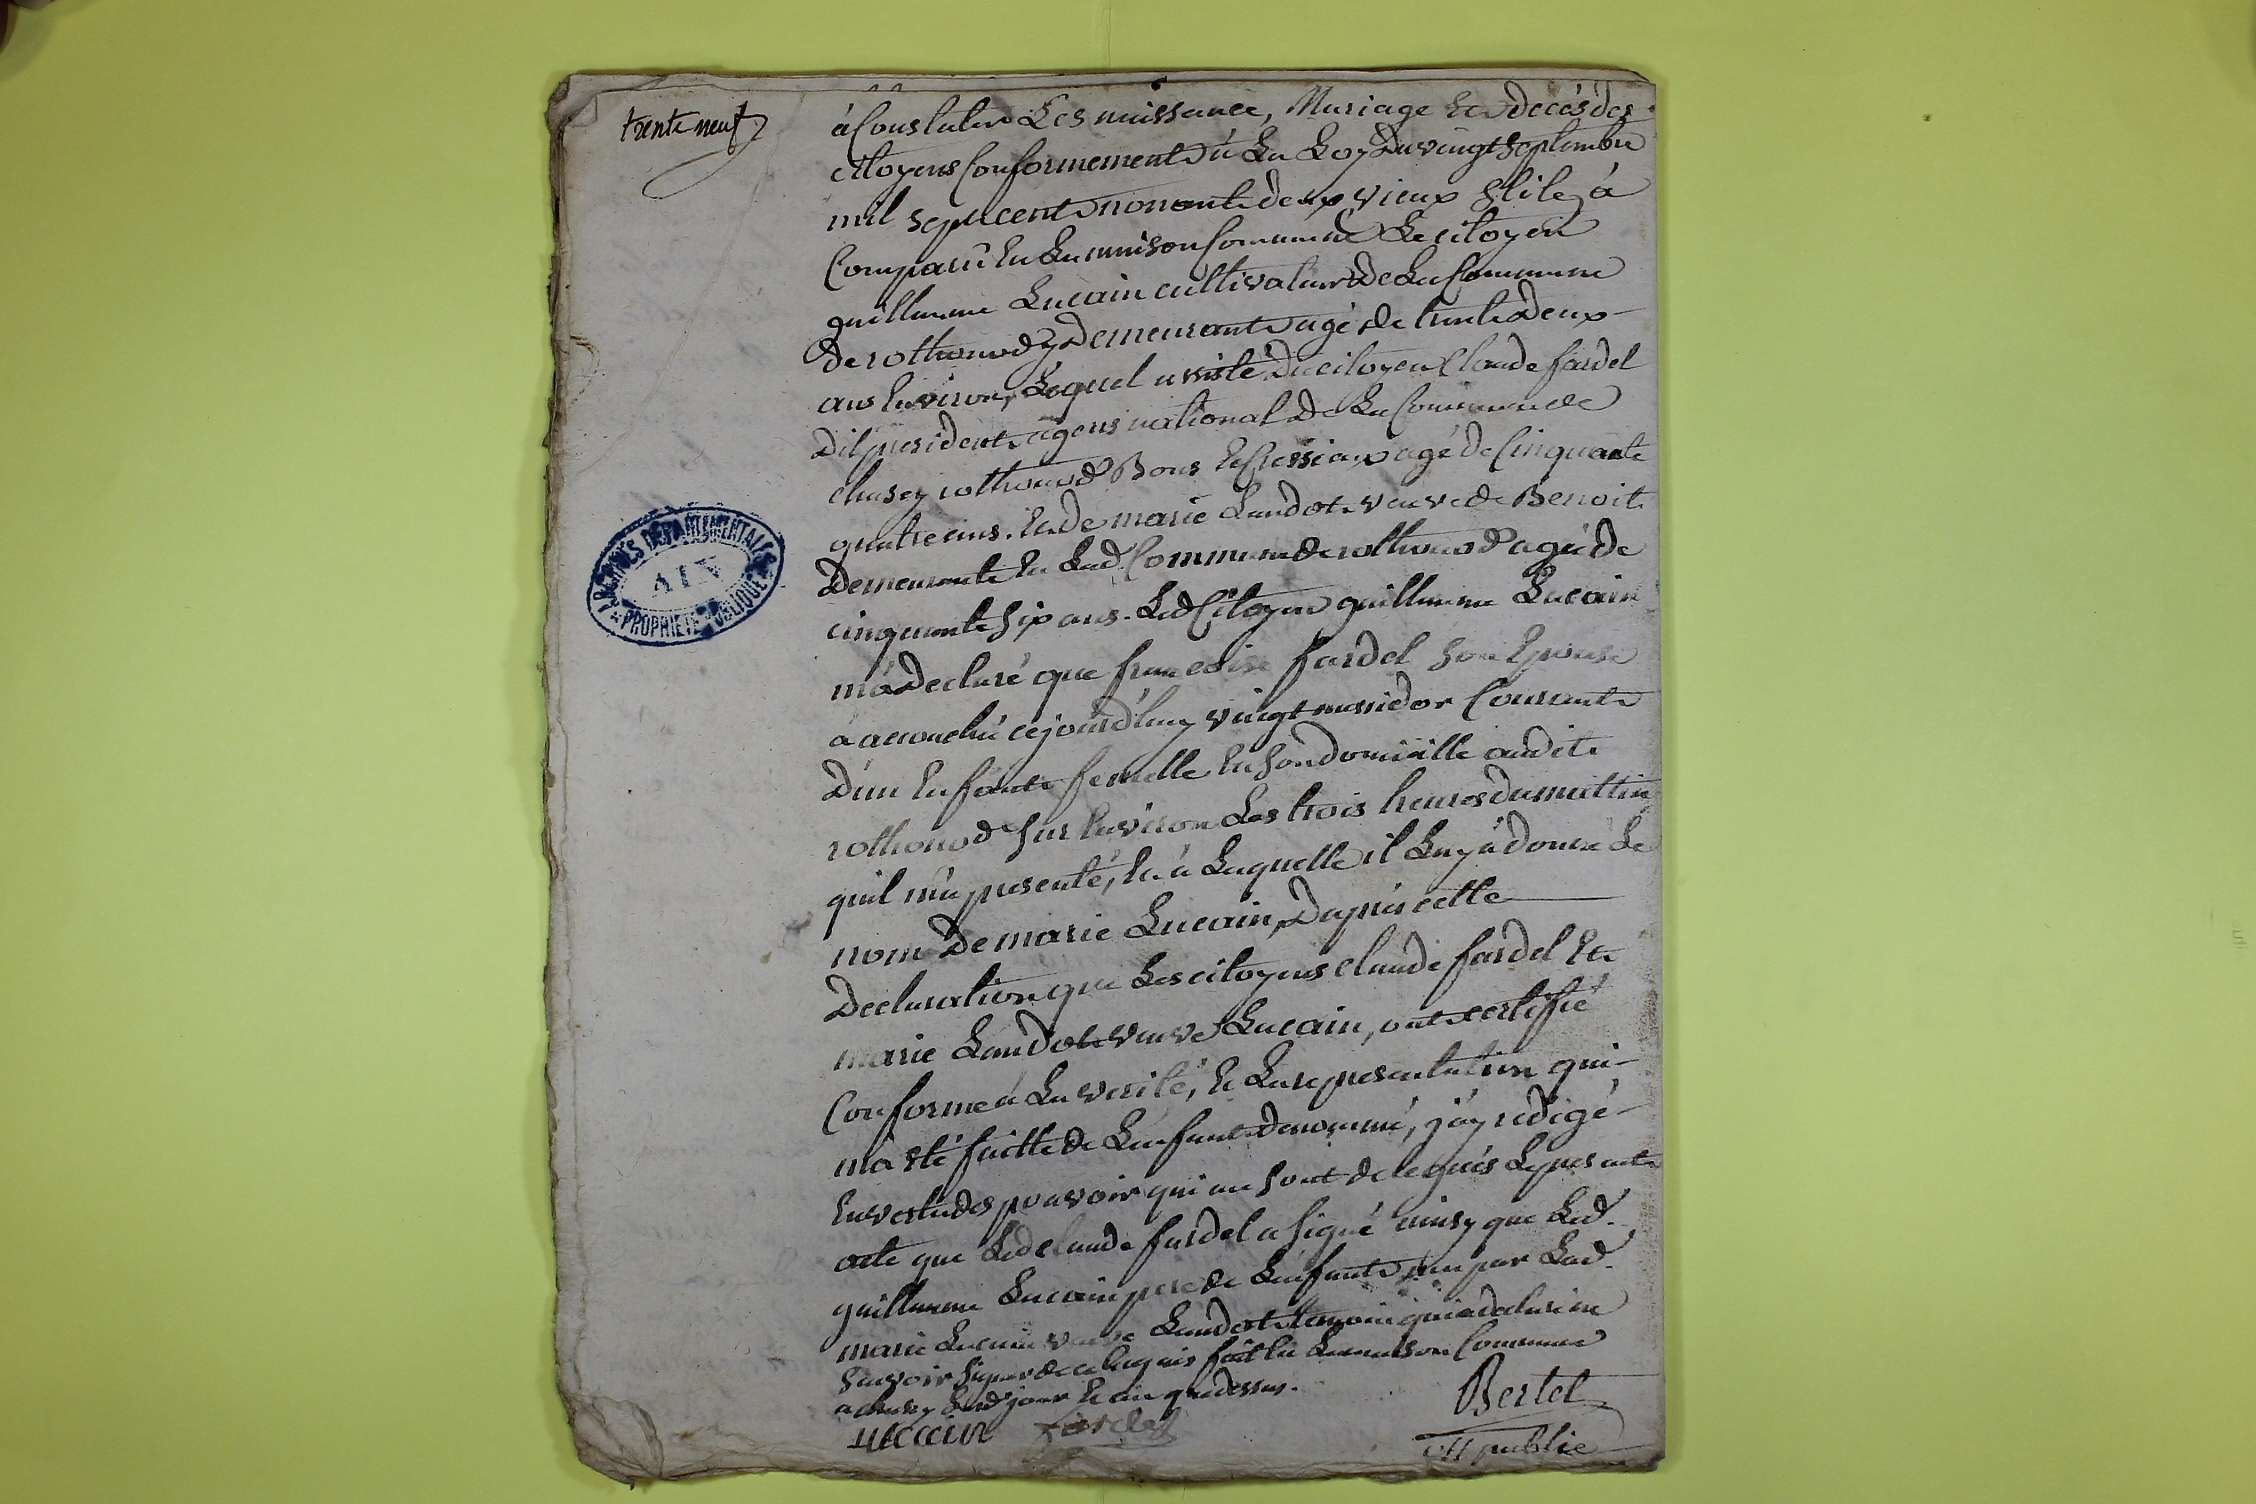 trente neuf
à Constater Les naissance, Mariage et decés des
citoyens Conformement à La Loy Du vingt septembre
mil sept cent nonante deux vieux stile, à
Comparu En La maison Commune Le citoyen
guillaume Lucain cultivateur de La Commune
de rothonod y Demeurant agé de trente Deux
ans Environ, Lequel assisté Du citoyen Claude fardel
Dit president agens national de La Commune de
chasey rothonod Bons Et Cressieux agé de Cinquante
quatre ans. Et de marie Landot veuve de Benoit
Demeurante En Lad. Commune de rothonod agée de
cinquante six ans. Led Citoyen guillaume Lucain
m'a Declaré que francoise fardel son Epouse
a acouchée cejourd'huy vingt messidor Courant
D'un Enfant femelle En son domicille audit
rothonod sur Environ Les trois heures du mattin
quil m'a presenté, Et à Laquelle il Luy à donné Le
nom De marie Lucain, Daprés cette
Declaration que Les citoyens claude fardel Et
marie Landot veuve Lucain, ont certifié
Conforme à La verité, Et La representation qui
m'a eté faitte de L'enfant denommé, j'ay redigé
En vertu des pouvoir qui me sont delegués Le present
acte que Led claude fardel a signé ainsy que Led.
guillaume Lucain pere de L'enfant, non par Lad.
marie Lucain veuve Landot temoin qui a declaré ne
savoir signer de ce Enquis fait En La maison Commune
a chasey Lesd jour Et an que dessus.
Bertet
Lucain fardel
off public
ARCHIVES DÉPARTEMENTALES
AIN
PROPRIÉTÉ PUBLIQUE